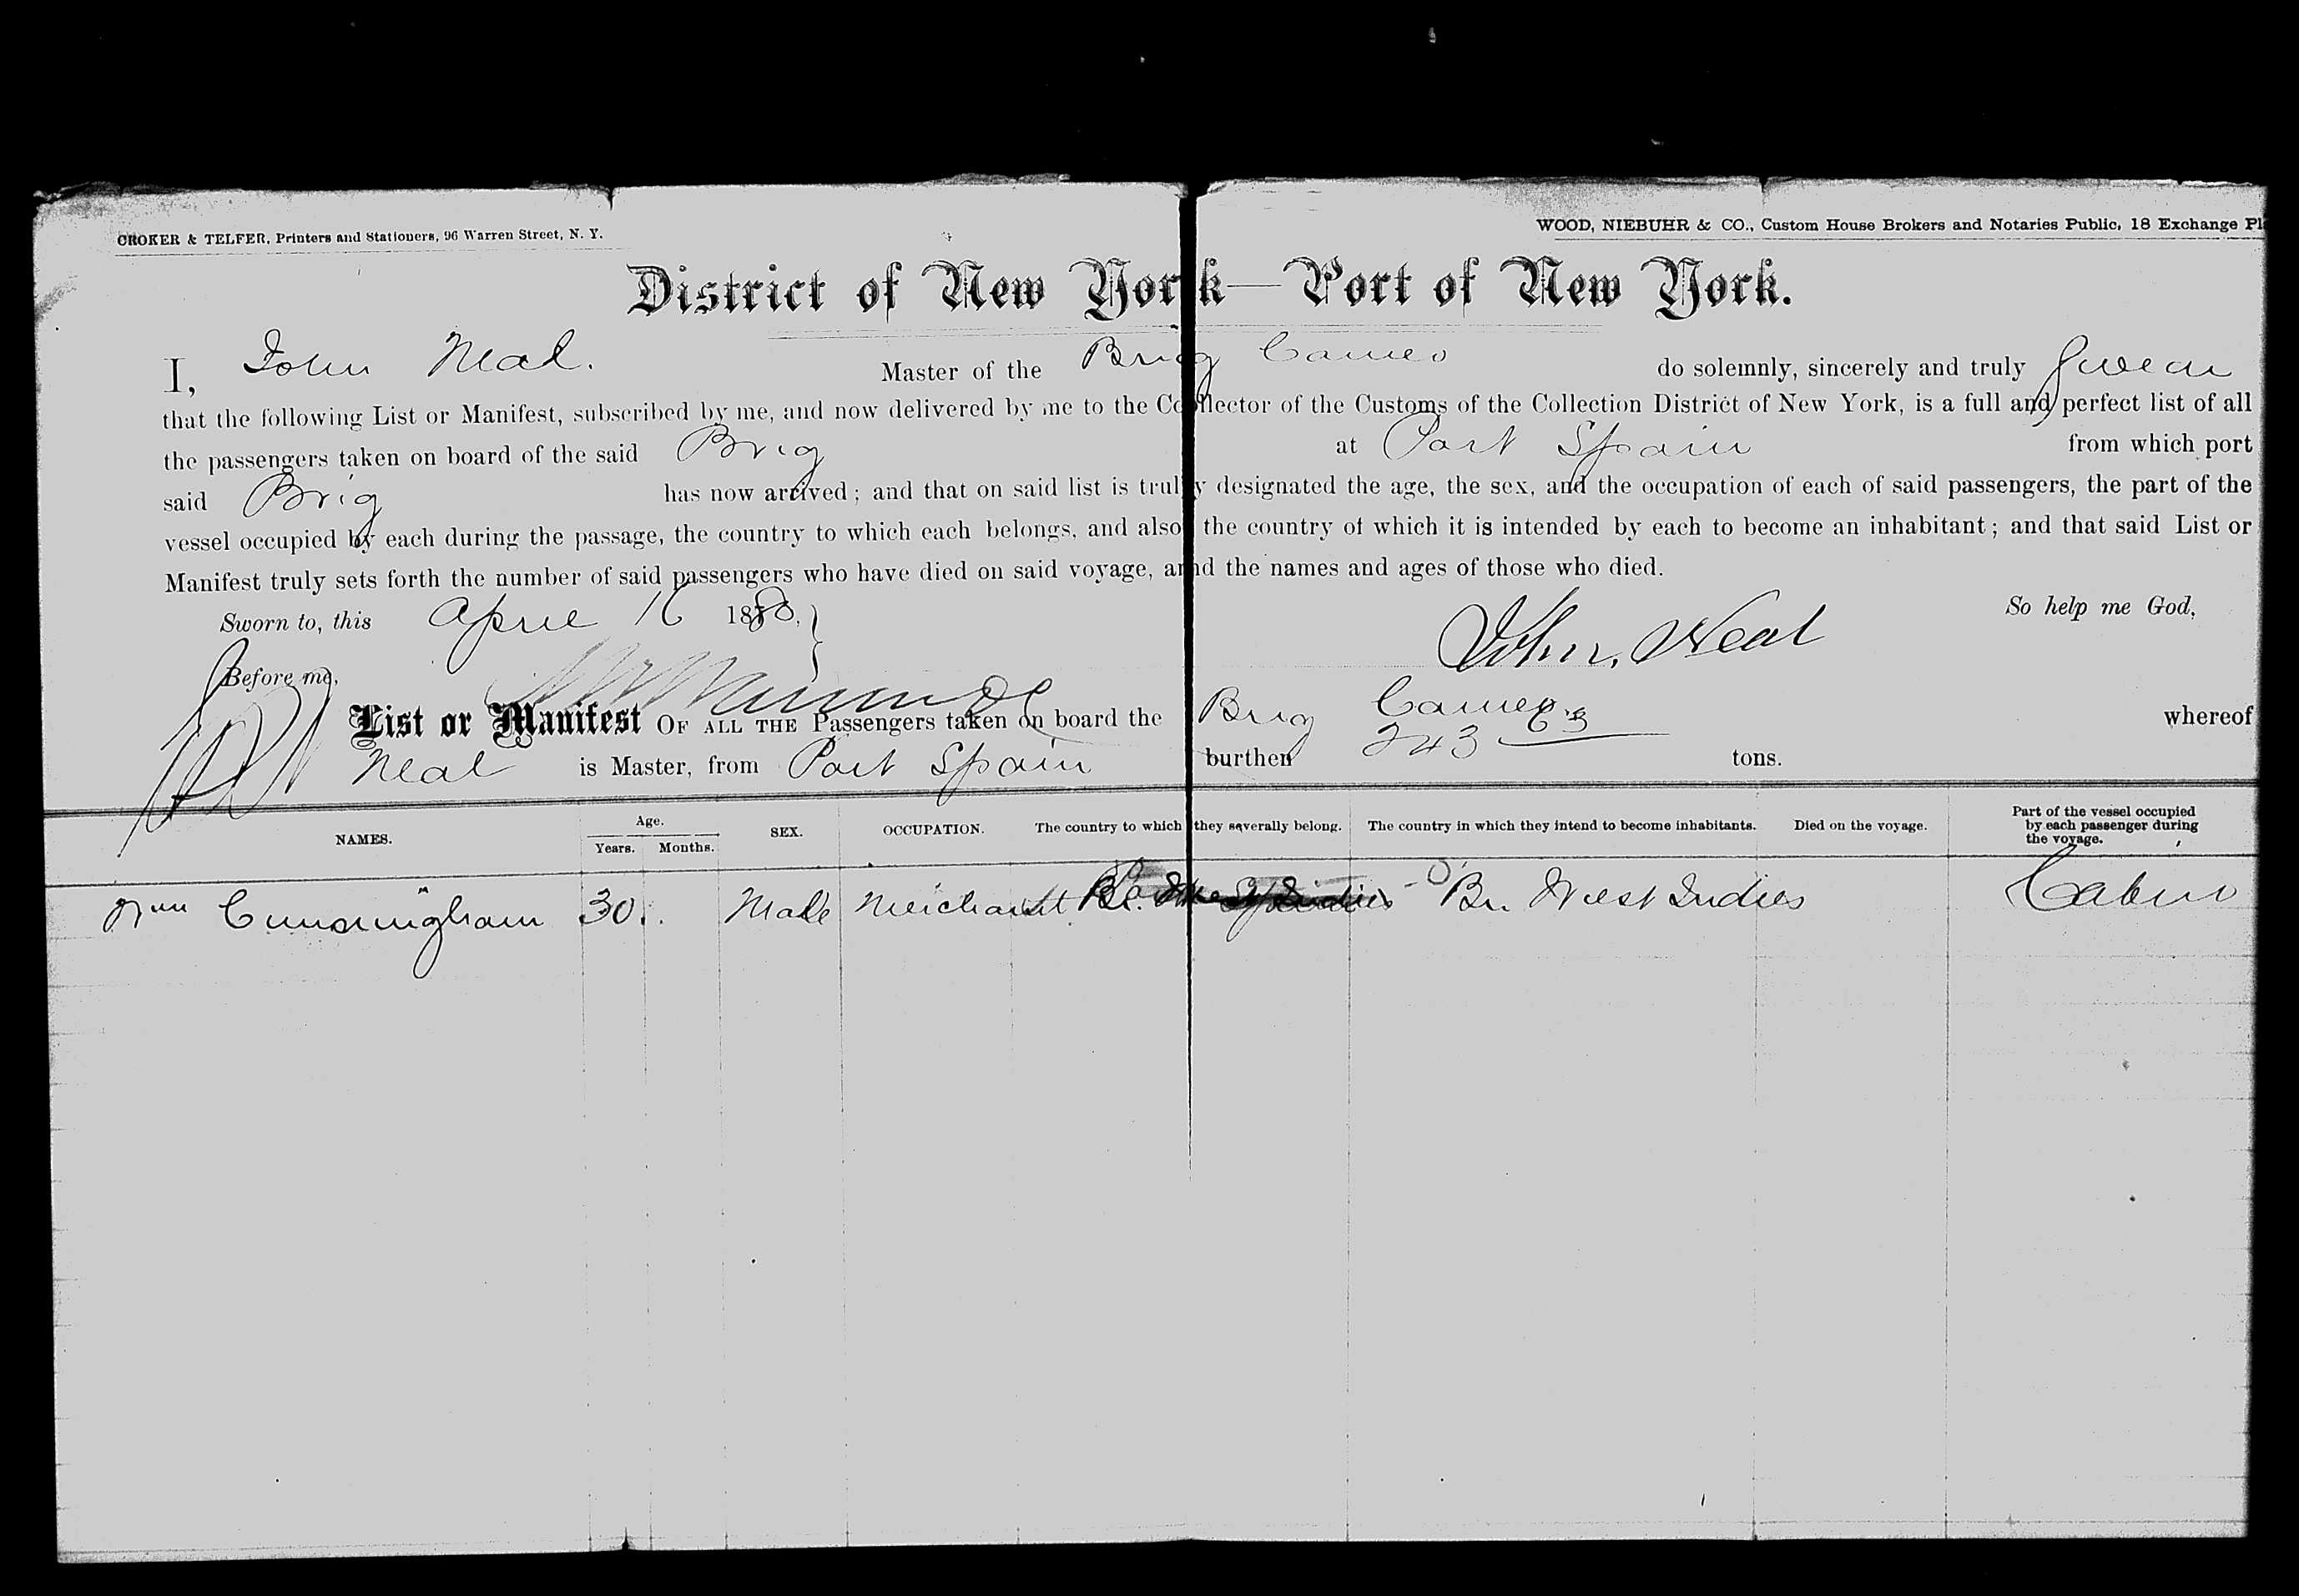 CROKER & TELFER, Printers and Stationers, 96 Warren Street, N. Y.
WOOD, NIEBUHR & CO., Custom House Brokers and Notaries Public, 18 Exchange Pl
District of New York—Port of New York.
I, John Neal. Master of the Brig Cameo do solemnly, sincerely and truly Swear
that the following List or Manifest, subscribed by me, and now delivered by me to the Collector of the Customs of the Collection District of New York, is a full and perfect list of all
the passengers taken on board of the said Brig at Port Spain from which port
said Brig has now arrived; and that on said list is truly designated the age, the sex, and the occupation of each of said passengers, the part of the
vessel occupied by each during the passage, the country to which each belongs, and also the country of which it is intended by each to become an inhabitant; and that said List or
Manifest truly sets forth the number of said passengers who have died on said voyage, and the names and ages of those who died.
Sworn to, this April 16 1880. So help me God,
John Neal
Before me,
List or Manifest OF ALL THE Passengers taken on board the Brig Cameo whereof
Neal is Master, from Port Spain burthen 243 63 tons.
NAMES. Age. Years. Months. SEX. OCCUPATION. The country to which they severally belong. The country in which they intend to become inhabitants. Died on the voyage. Part of the vessel occupied by each passenger during the voyage.
Wm Cunningham 30. Male Merchant Br. West Indies Cabin